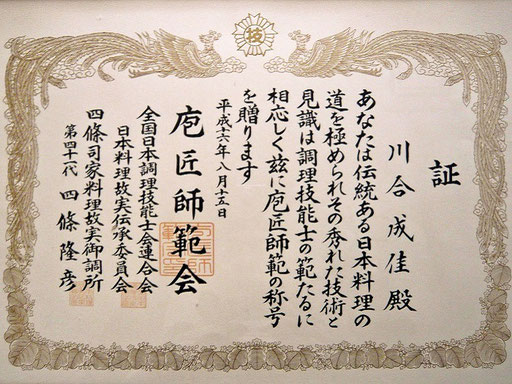 技
証
川合成佳殿
あなたは伝統ある日本料理の
道を極められその秀れた技術と
見識は調理技能士の範たるに
相応しく茲に庖匠師範の称号
を贈ります
平成十六年八月十五日
庖匠師範会
全国日本調理技能士会連合会
日本料理故実伝承委員会
四條司家料理故実御調所
第四十一代 四條隆彦